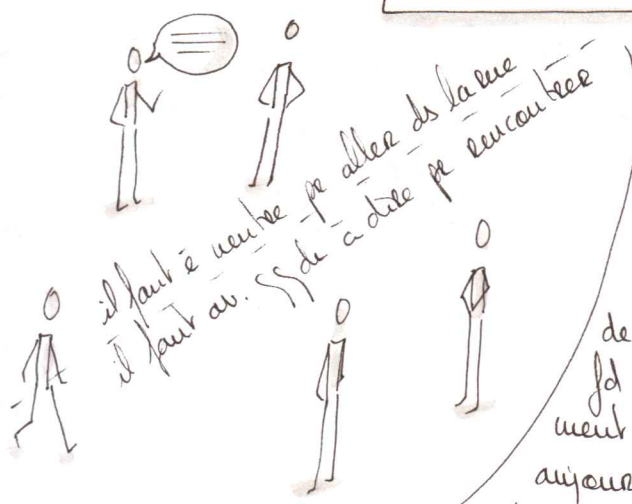 il faut ê neutre pr aller ds la rue
il faut av. qq ch à dire pr rencontrer
de
fd
ment
aujour